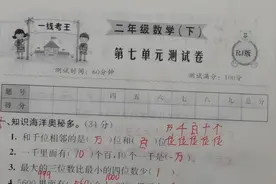 一线考王
二年级数学(下)
第七单元测试卷
RJ版
测试时间:60分钟
测试满分:100分
题号 一 二 三 四 五 六 总分
一、知识海洋奥秘多。(34分)
万千百十个
位位位位位
1. 和千位相邻的是(万)位和(百)位
2. 一千里面有(10)个百,10个一千是(一万)。
999 1000
3. 最大的三位数比最小的四位数少(1)。